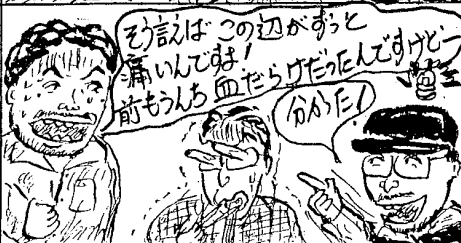 そう言えば この辺がずっと
痛いんですよ!
前もうんち 血だらけだったんですけどー
分かった!